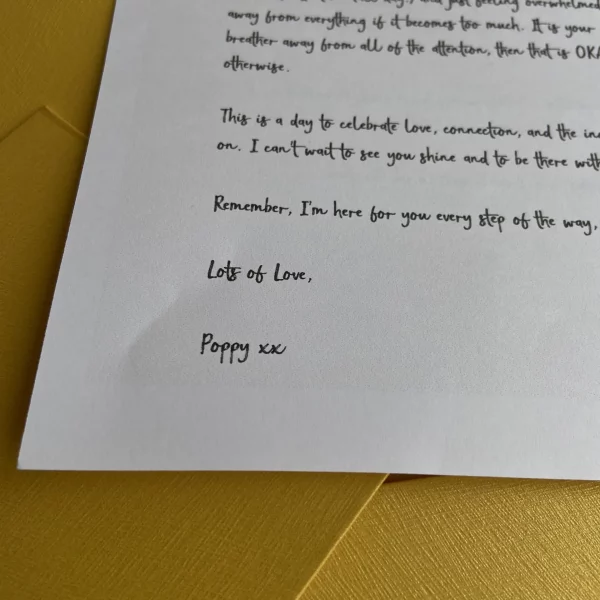 just feeling overwhelmed
away from everything if it becomes too much. It is your
breather away from all of the attention, then that is OKA
otherwise.
This is a day to celebrate love, connection, and the in
on. I can't wait to see you shine and to be there with
Remember, I'm here for you every step of the way,
Lots of Love,
Poppy xx